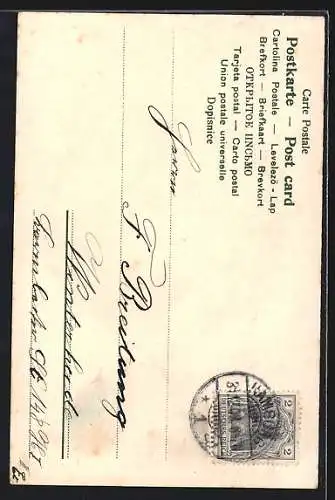 Carte Postale
Postkarte — Post card
Cartolina Postale — Levelező-Lap
Brefkort — Briefkaart — Brevkort
ОТКРЫТОЕ ПИСЬМО
Tarjeta postal — Carto postal
Union postale universelle
Dopisnice
Herrn
F Breitung
Winterhude
2 2
HAMBURG